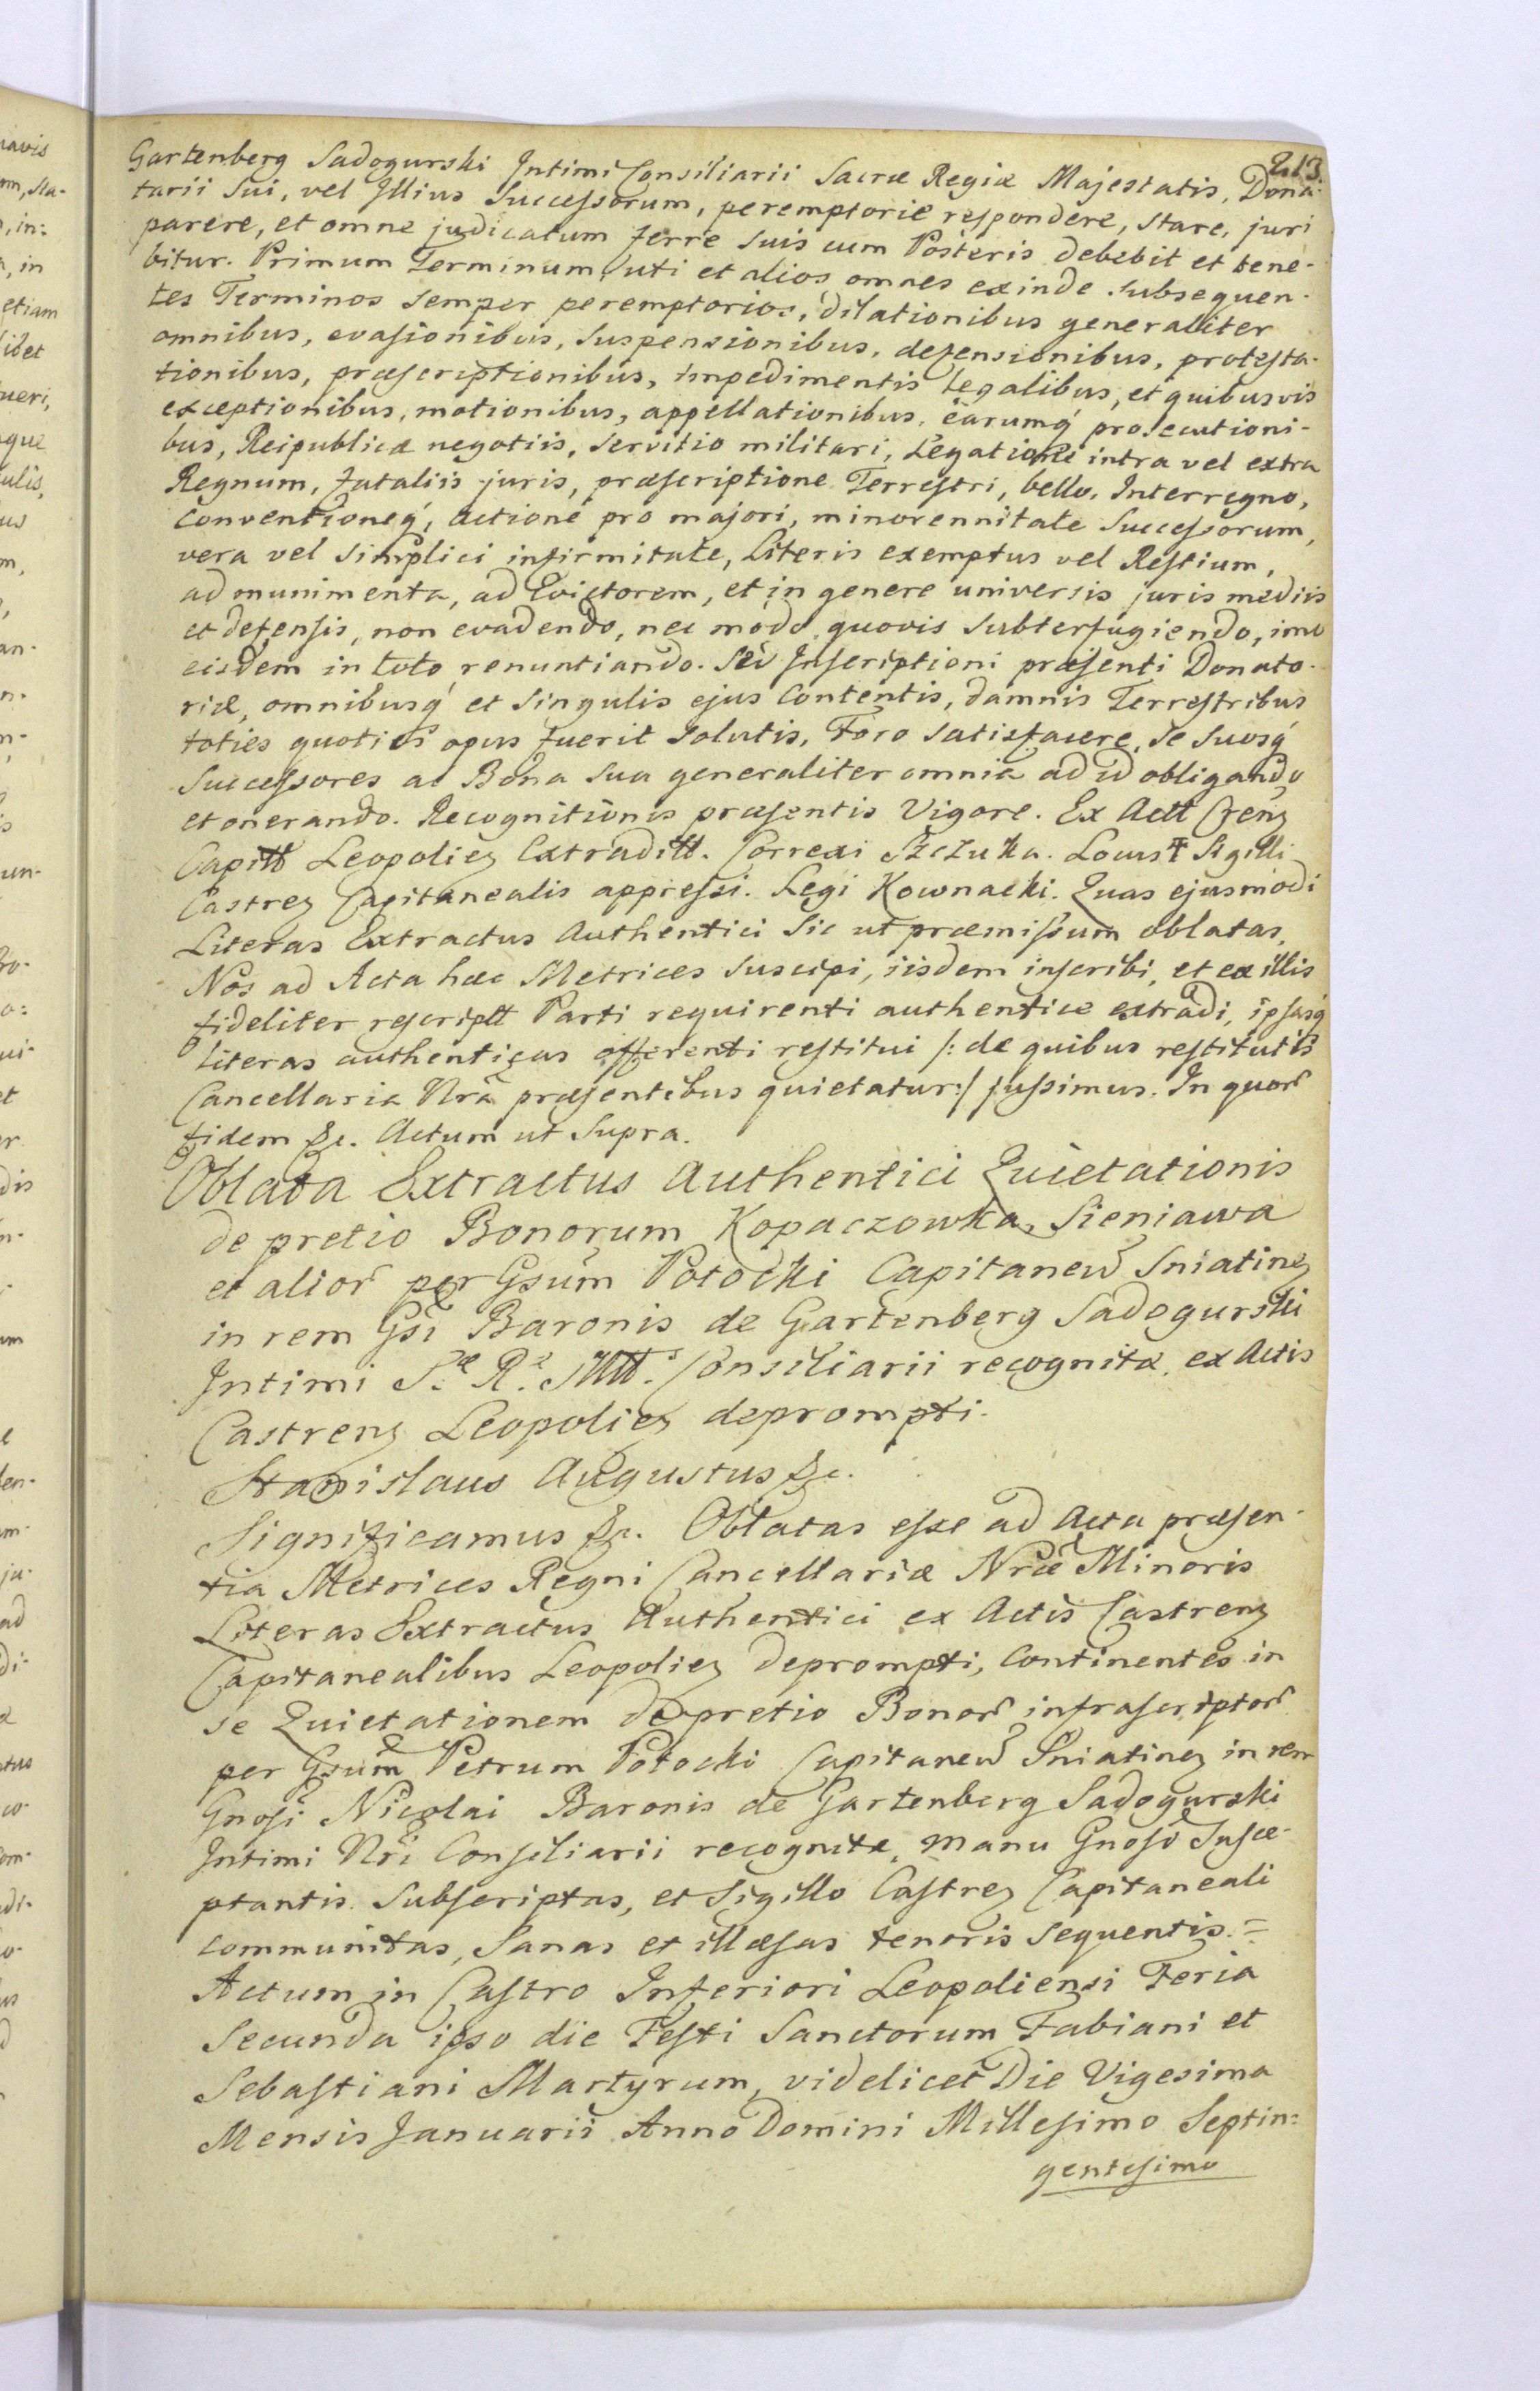 213.
Gartenberg Sadogurski Intimi Consiliarii Sacræ Regiæ Majestatis, Dona-
tarii Sui, vel Illius Successorum, peremptorie respondere, stare, juri
parere, et omne judicatum ferre suis cum Posteris debebit et tene-
bitur. Primum Terminum, uti et alios omnes exinde subsequen-
tes Terminos semper peremptorios, dilationibus generaliter
omnibus, evasionibus, suspensionibus, defensionibus, protesta-
tionibus, præscriptionibus, impedimentis legalibus, et quibusvis
exceptionibus, motionibus, appellationibus, earumq́ prosecutioni-
bus, Reipublicæ negotiis, servitio militari, Legatione intra vel extra
Regnum, fataliis juris, præscriptione Terrestri, bello, Interregno,
conventioneq́, actione pro majori, minorennitate Successorum,
vera vel simplici infirmitate, Literis exemptus vel Restium,
ad munimenta, ad Evictorem, et in genere universis juris mediis
et defensis, non evadendo, nec modo quovis subterfugiendo, imo
eisdem in toto renuntiando. Sed Inscriptioni præsenti Donato-
riæ, omnibusq́ et singulis ejus contentis, damnis Terrestribus
toties quoties opus fuerit solutis, Foro satisfacere, se suosq́
Successores ac Bona sua generaliter omnia ad id obligando
et onerando. Recognitionis præsentis Vigore. Ex Actt Crenz
Capitt Leopoliez Extraditt. Correxi Szczuka. Locus Sigilli
Castrez Capitanealis appressi. Legi Kownacki. Quas ejusmodi
Literas Extractus Authentici sic ut præmissum oblatas,
Nos ad Acta hæc Metrices suscipi, iisdem inscribi, et ex illis
fideliter rescriptt Parti requirenti authentice extradi, ipsasq́
literas authenticas offerenti restitui /: de quibus restitutis
Cancellaria Nrã præsentibus quietatur:/ jussimus. In quor̃
fidem &c. Actum ut supra.
Oblata Extractus Authentici Quietationis
de pretio Bonorum Kopaczowka, Sieniawa
et alior̃ per Gsum Potocki Capitaneũ Sniatinz
in rem Gsi Baronis de Gartenberg Sadogurski
Intimi S.æ R.æ Mtt.s Consiliarii recognitæ, ex Actis
Castrenz Leopoliez deprompti.
Stanislaus Augustus &c.
Significamus &c. Oblatas esse ad Acta præsen-
tia Metrices Regni Cancellariæ Nræ Minoris
Literas Extractus Authentici ex Actis Castrenz
Capitanealibus Leopoliez deprompti, continentes in
se Quietationem de pretio Bonor̃ infrascriptor̃
per Gsum Petrum Potocki Capitaneũ Sniatinz in rem
Gnosi Nicolai Baronis de Gartenberg Sadogurski
Intimi Nri Consiliarii recognitæ, manu Gnosi Susce-
ptantis subscriptas, et Sigillo Castrez Capitaneali
communitas, sanas et illæsas tenoris sequentis. =
Actum in Castro Inferiori Leopoliensi Feria
Secunda ipso die Festi Sanctorum Fabiani et
Sebastiani Martyrum, videlicet Die Vigesima
Mensis Januarii Anno Domini Millesimo Septin=
gentesimo